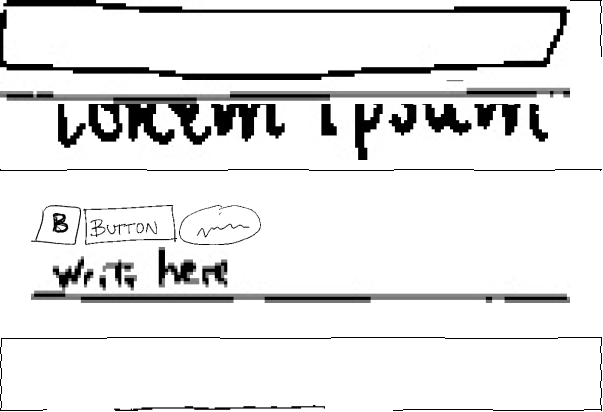 Lorem ipsum
B BUTTON
write here